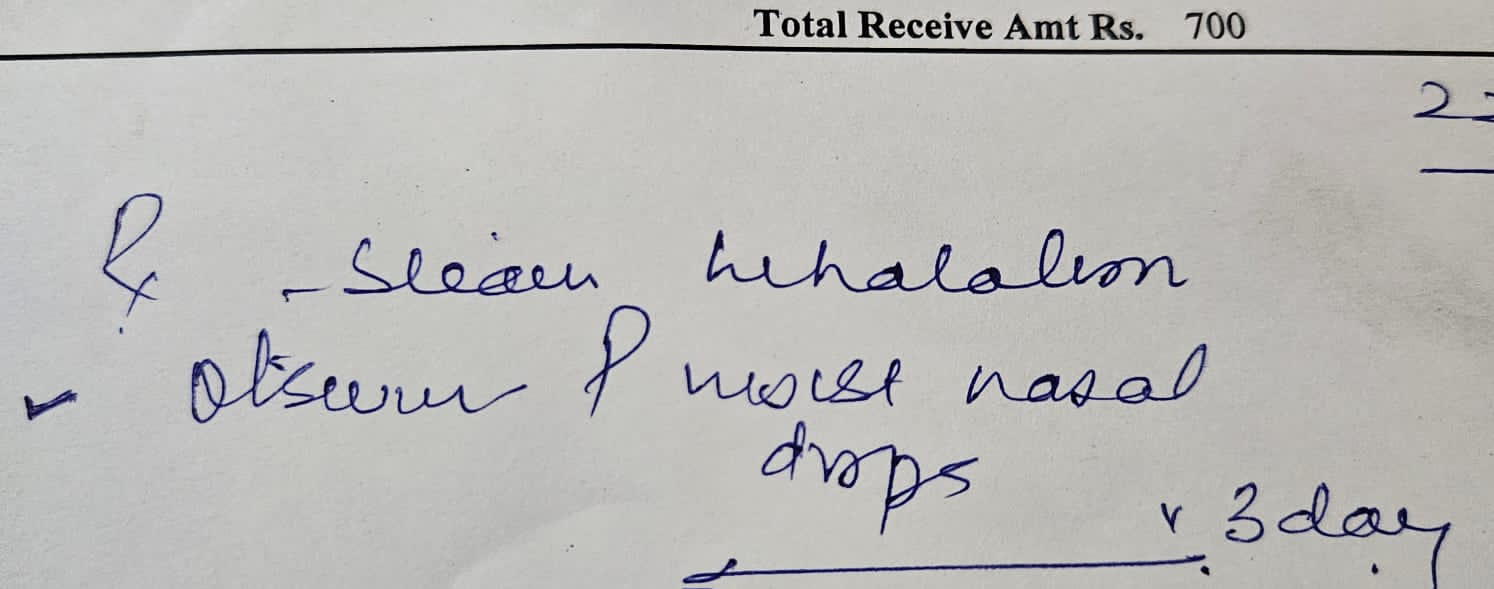 Total Receive Amt Rs. 700
22
Rx - Steam Inhalation
✓ Otisurin P moist nasal
drops
x 3 day